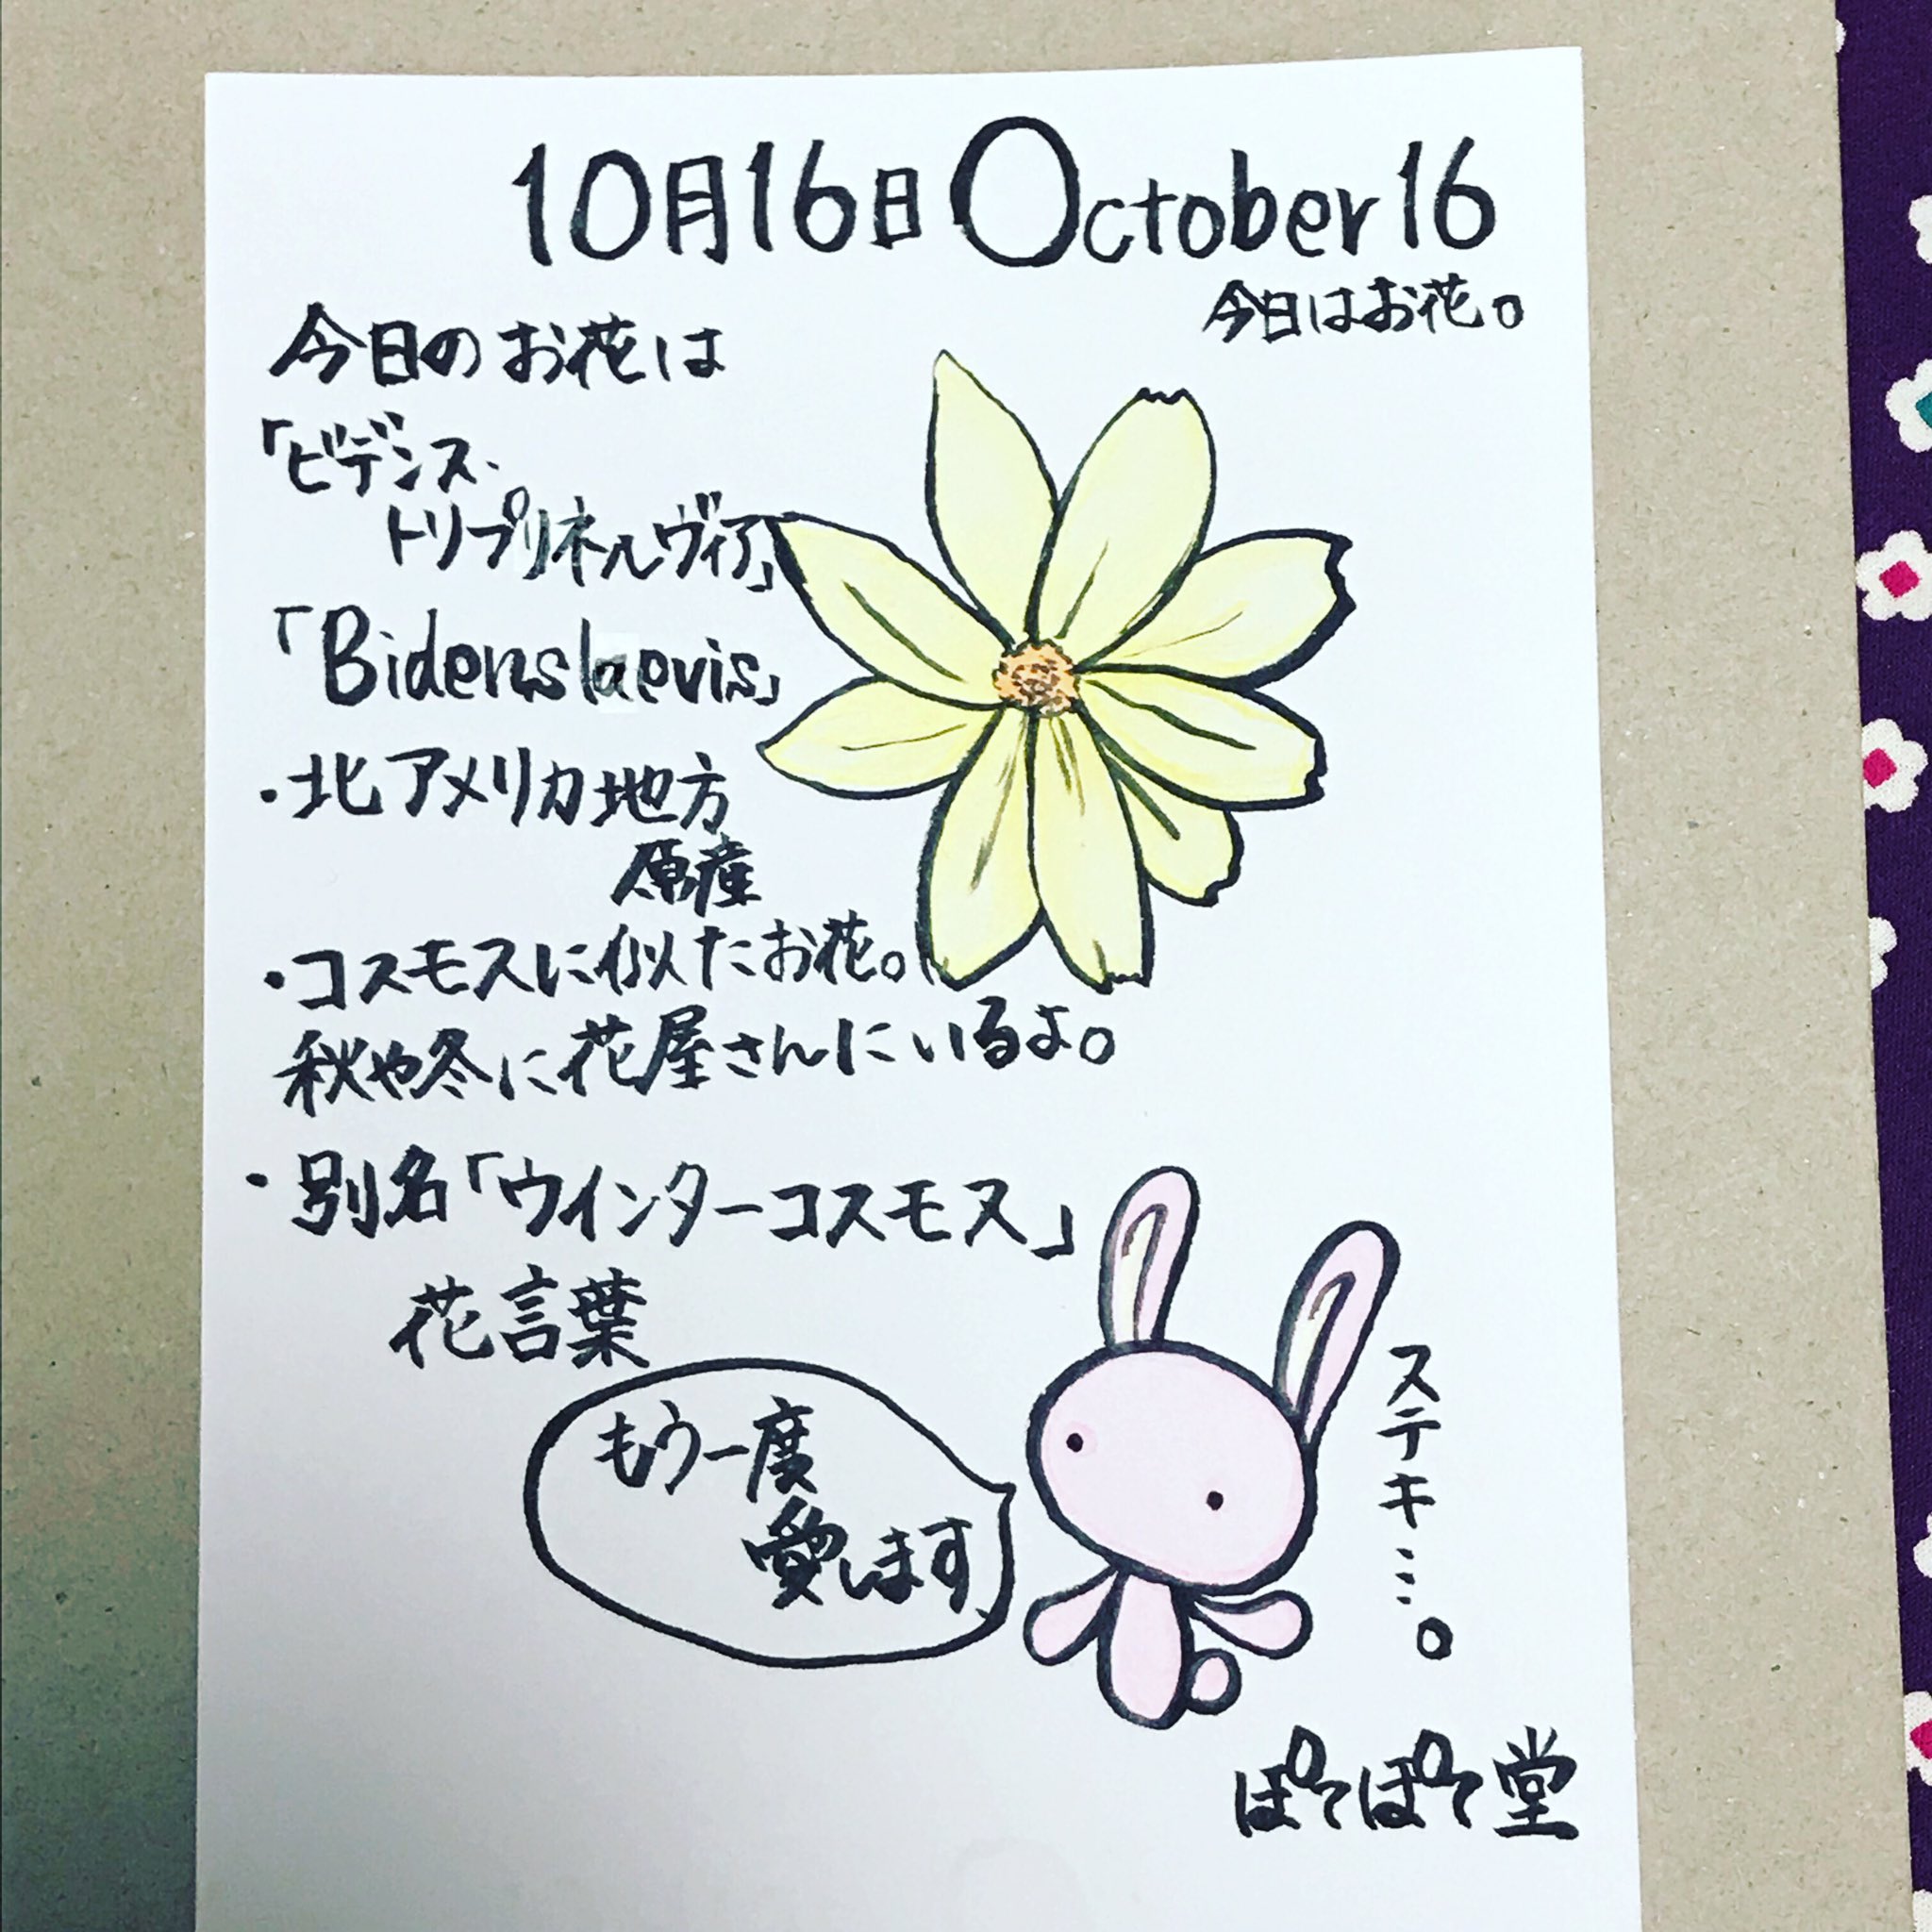 10月16日 October 16
今日はお花。
今日のお花は
「ビデンス・
トリプリネルヴィア」
「Bidens laevis」
・北アメリカ地方
原産
・コスモスに似たお花。
秋や冬に花屋さんにいるよ。
・別名「ウインターコスモス」
花言葉
もう一度
愛します
ステキ……。
ぽてぽて堂